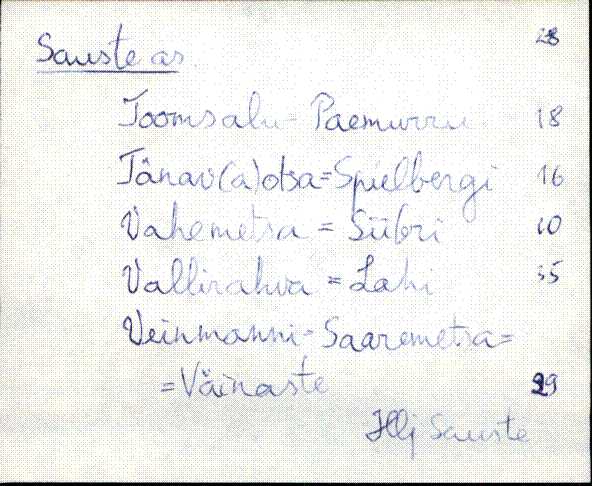 Sauste as
Toomsalu = Paemurru 18
Tänav(a)otsa = Spielbergi 16
Vahemetsa = Süüri 10
Vallirahva = Lahi 35
Veinmanni = Saaremetsa =
= Väinaste 29
Sauste